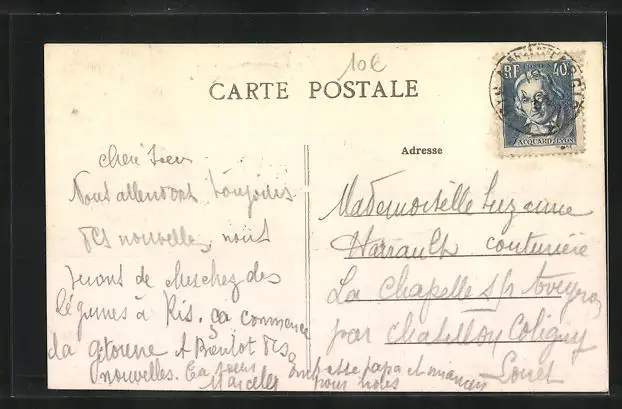 10€
CARTE POSTALE
RF POSTES 40c
JACQUARD LYON
Adresse
cheri
Nous attendont toujours
des nouvelles, nous
de cherchez des
légumes à Ris. ça commence
Bientot des
nouvelles. Ta soeur
Marcelle
Embrasse papa et maman
pour nous
Mademoiselle Suzanne
Harrault couturière
La Chapelle s/r Aveyron
par Chatillon Coligny
Loiret